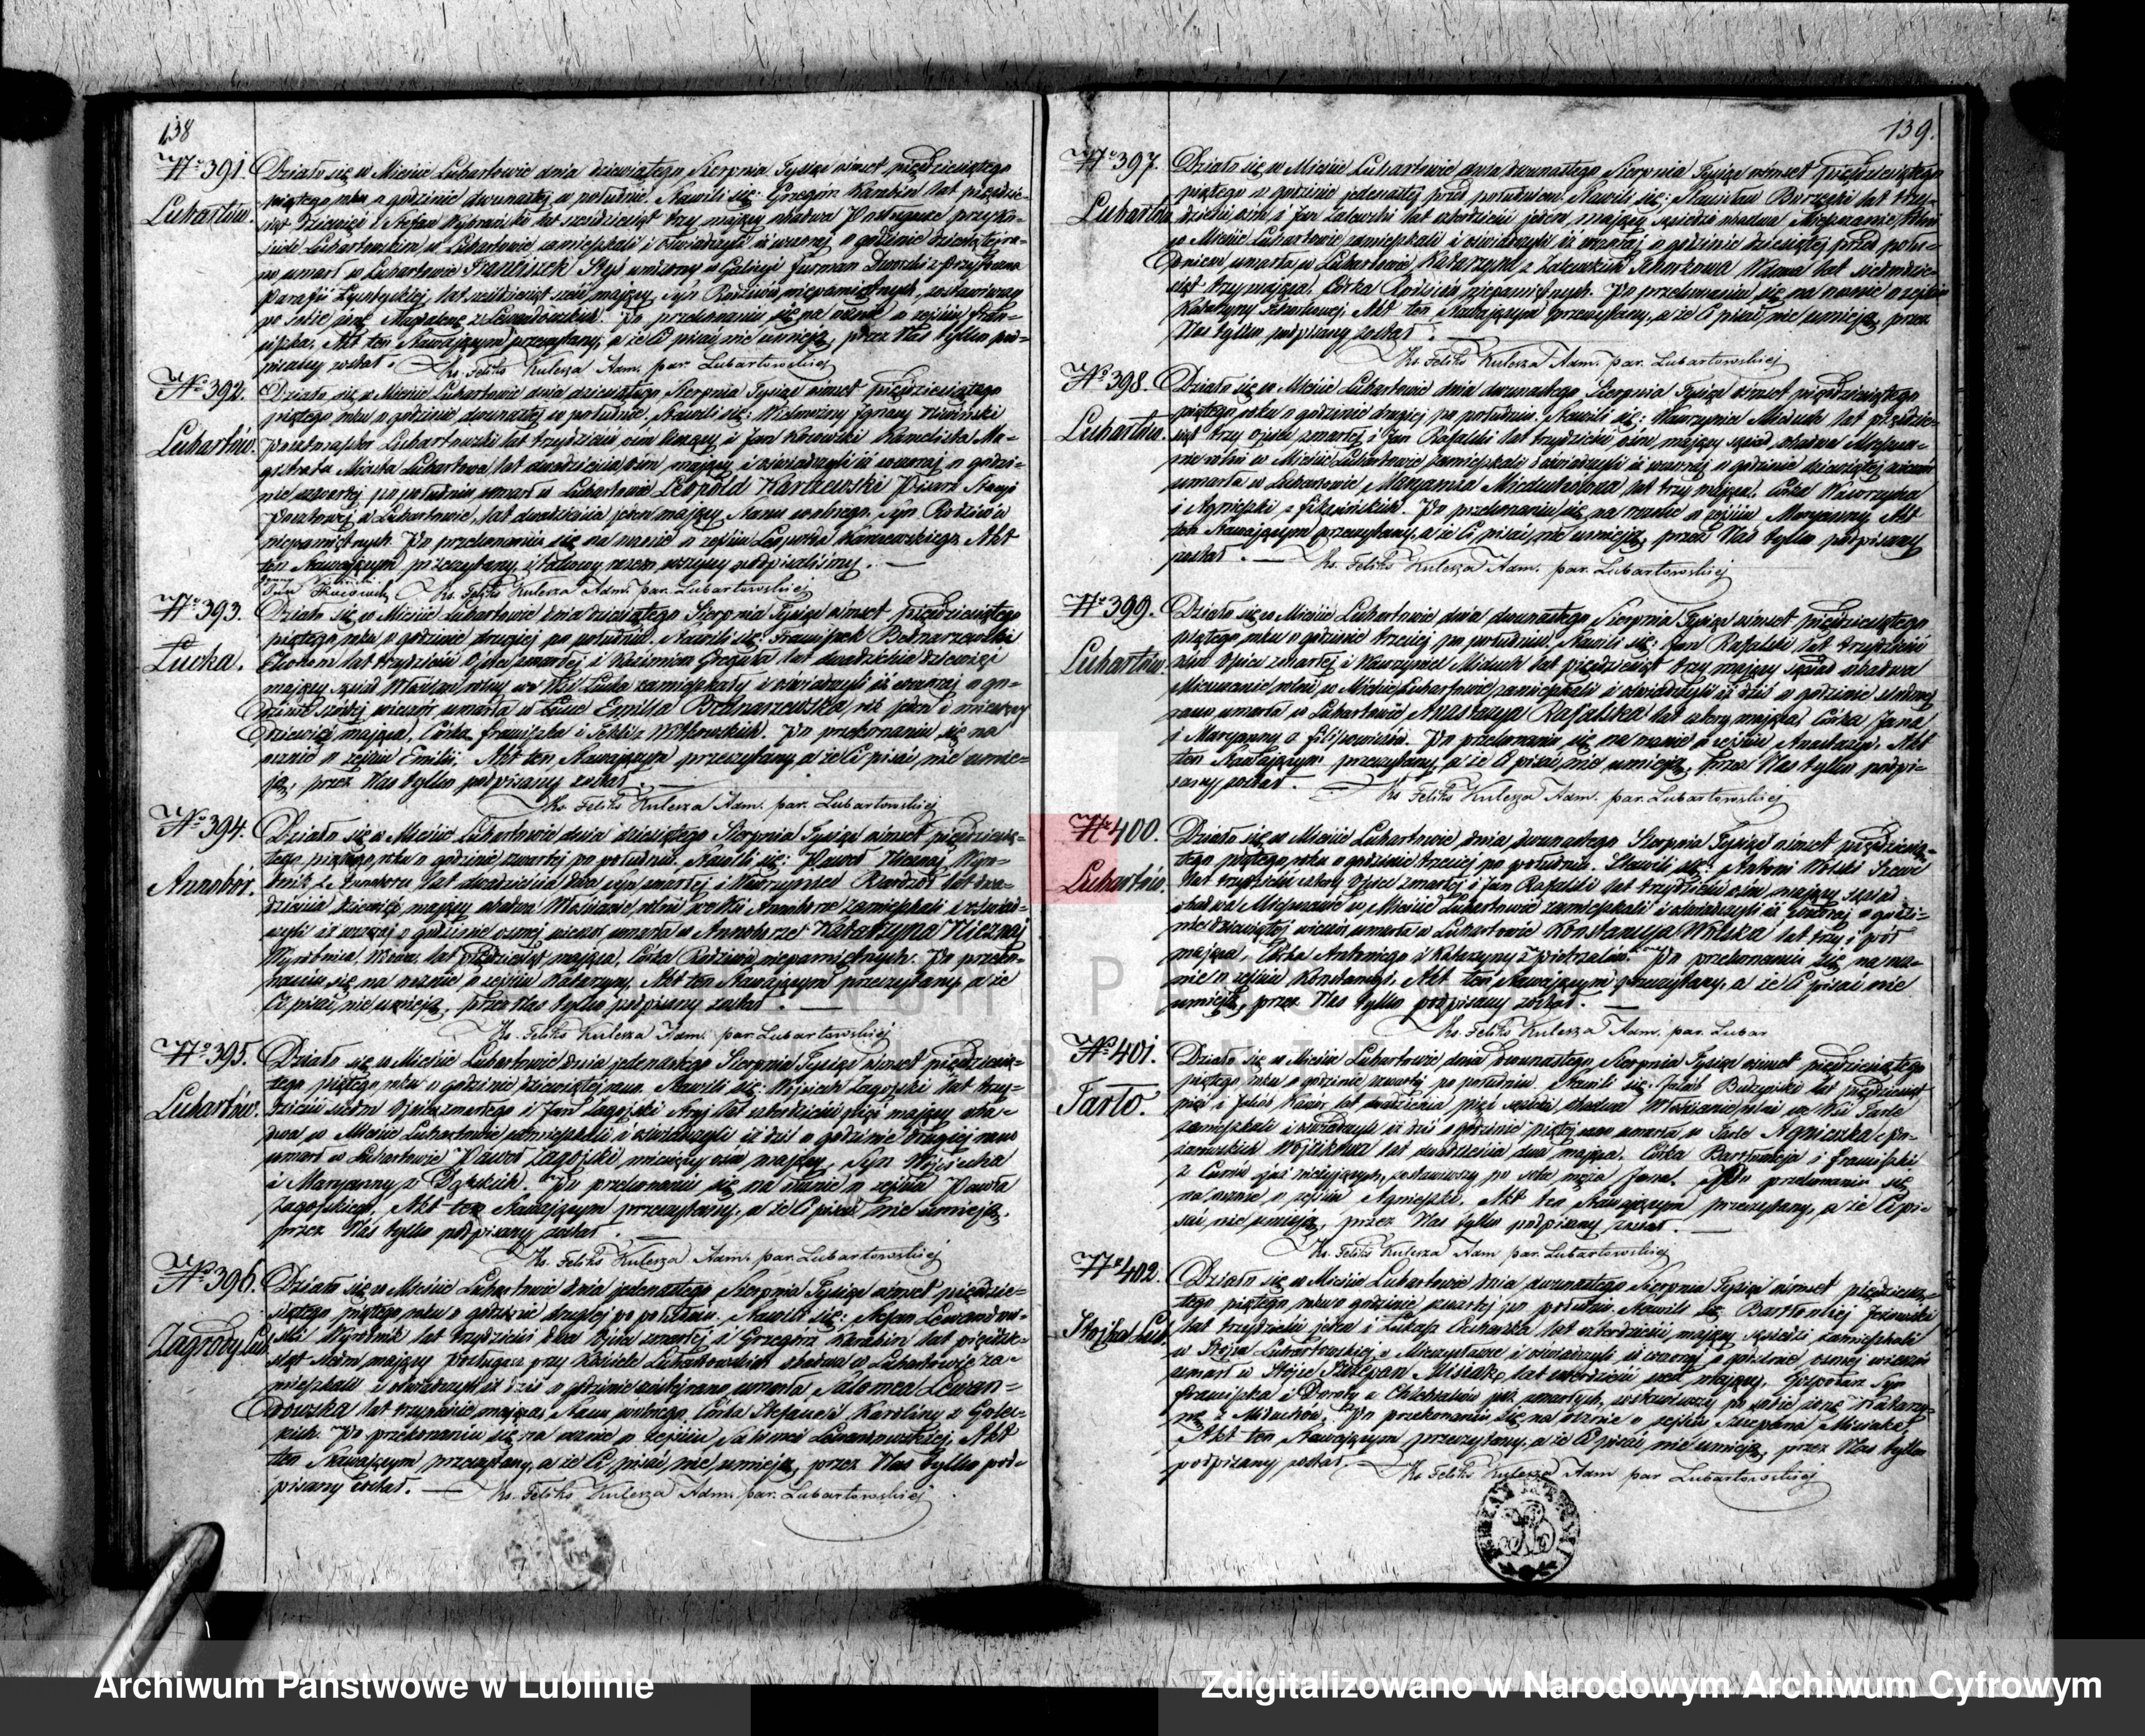 138
N° 391.
Lubartów.
Działo się w Mieście Lubartowie dnia dziewiątego Sierpnia Tysiąc ośmset pięćdziesiątego
piątego roku o godzinie dwunastej w południe. Stawili się: Grzegorz Karabin lat pięćdzie-
siąt dziewięć i Stefan lat sześćdziesiąt trzy mający obadwa przy Ko-
ściele Lubartowskim w Lubartowie zamieszkali i oświadczyli iż wczoraj o godzinie dziesiątej ra-
no umarł w Lubartowie Franciszek urodzony w Galicyi furman Dworski z
Parafii lat sześćdziesiąt sześć mający, Syn Rodziców niepamiętnych, zostawiwszy
po sobie żonę Magdalenę z Lewandowskich. Po przekonaniu się na ocznie o zejściu Fran-
ciszka, Akt ten Stawającym przeczytany, a że Ci pisać nie umieją, przez Nas tylko pod-
pisany został.
Ks. Feliks Kulesza Adm. par. Lubartowskiej
N° 392.
Lubartów.
Działo się w Mieście Lubartowie dnia dziesiątego Sierpnia Tysiąc ośmset pięćdziesiątego
piątego roku o godzinie dwunastej w południe. Stawili się: Wielmożny Ignacy
Lubartowski lat trzydzieści ośm liczący, i Jan Kosowski Kancelista Ma-
gistratu Miasta Lubartowa lat dwadzieścia ośm mający, i oświadczyli iż wczoraj o godzi-
nie czwartej po południu umarł w Lubartowie Leopold Karczewski Pisarz Stacyi
Pocztowej w Lubartowie, lat dwadzieścia jeden mający, stanu wolnego, Syn Rodziców
niepamiętnych. Po przekonaniu się na ocznie o zejściu Leopolda Karczewskiego, Akt
ten Stawającym przeczytany, i Takowy razem wszyscy podpisaliśmy.
Ks. Feliks Kulesza Adm. par. Lubartowskiej
N° 393.
Łucka.
Działo się w Mieście Lubartowie dnia dziesiątego Sierpnia Tysiąc ośmset pięćdziesiątego
piątego roku o godzinie drugiej po południu. Stawili się: Franciszek Bednarzewski
lat trzydzieści Ojciec zmarłej i Kaźmierz Greguła lat dwadzieścia dziewięć
mający sąsiad Włościan rolny we Wsi Łucka zamieszkały i oświadczyli iż wczoraj o go-
dzinie szóstej wieczór umarła w Łucce Emilija Bednarzewska rok jeden i miesięcy
dziewięć mająca, Córka Franciszka i Tekli z Witkowskich. Po przekonaniu się na
ocznie o zejściu Emilii. Akt ten Stawającym przeczytany, a że Ci pisać nie umie-
ją, przez Nas tylko podpisany został.
Ks. Feliks Kulesza Adm. par. Lubartowskiej
N° 394.
Annobór.
Działo się w Mieście Lubartowie dnia dziesiątego Sierpnia Tysiąc ośmset pięćdziesią-
tego piątego roku o godzinie czwartej po południu. Stawili się: Paweł Nieznaj Wyro-
bnik z Annobora lat dwadzieścia dwa syn zmarłej i Wawrzyniec lat dwa-
dzieścia dziewięć mający obadwa Włościanie rolni we Wsi Annoborze zamieszkali i oświad-
czyli iż wczoraj o godzinie ósmej wieczór umarła w Annoborze Katarzyna Nieznaj
Wyrobnica, Wdowa, lat pięćdziesiąt mająca, Córka Rodziców niepamiętnych. Po przeko-
naniu się na ocznie o zejściu Katarzyny, Akt ten Stawającym przeczytany, a że
Ci pisać nie umieją, przez Nas tylko podpisany został.
Ks. Feliks Kulesza Adm. par. Lubartowskiej
N° 395.
Lubartów.
Działo się w Mieście Lubartowie dnia jedenastego Sierpnia Tysiąc ośmset pięćdziesią-
tego piątego roku o godzinie dziewiątej rano. Stawili się: Wojciech Zagojski lat trzy-
dzieści siedm Ojciec zmarłego i Jan Zagojski Stryj lat czterdzieści pięć mający oba-
dwa w Mieście Lubartowie zamieszkali i oświadczyli iż dziś o godzinie drugiej rano
umarł w Lubartowie Paweł Zagojski miesięcy ośm mający, Syn Wojciecha
i Maryanny z. Po przekonaniu się na ocznie o zejściu Pawła
Zagojskiego, Akt ten Stawającym przeczytany, a że Ci pisać nie umieją,
przez Nas tylko podpisany został.
Ks. Feliks Kulesza Adm. par. Lubartowskiej
N° 396.
Zagrody Lub.
Działo się w Mieście Lubartowie dnia jedenastego Sierpnia Tysiąc ośmset pięćdzie-
siątego piątego roku o godzinie drugiej po południu. Stawili się: Stefan Lewandow-
ski Wyrobnik lat trzydzieści dwa Ojciec zmarłej i Grzegorz Karabin lat pięćdzie-
siąt siedm mający Posługacz przy Kościele Lubartowskim obadwa w Lubartowie za-
mieszkali i oświadczyli iż dziś o godzinie szóstej rano umarła Salomea Lewan-
dowska lat trzynaście mająca, stanu wolnego, Córka Stefana i Karoliny z Golec-
kich. Po przekonaniu się na ocznie o zejściu Salomei Lewandowskiej, Akt
ten Stawającym przeczytany, a że Ci pisać nie umieją, przez Nas tylko pod-
pisany został.
Ks. Feliks Kulesza Adm. par. Lubartowskiej
139.
N° 397.
Lubartów.
Działo się w Mieście Lubartowie dnia dwunastego Sierpnia Tysiąc ośmset pięćdziesiątego
piątego o godzinie jedenastej przed południem. Stawili się: Stanisław Borzęcki lat trzy-
dzieści ośm i Jan Zalewski lat czterdzieści jeden mający sąsiedzi obadwa Mieszczanie rolni
w Mieście Lubartowie zamieszkali i oświadczyli iż wczoraj o godzinie dziesiątej przed połu-
dniem umarła w Lubartowie Katarzyna z Zalewskich Wdowa lat siedmdzie-
siąt trzy mająca, Córka Rodziców niepamiętnych. Po przekonaniu się na ocznie o zejściu
Katarzyny, Akt ten Stawającym przeczytany, a że Ci pisać nie umieją, przez
Nas tylko podpisany został.
Ks. Feliks Kulesza Adm. par. Lubartowskiej
N° 398.
Lubartów.
Działo się w Mieście Lubartowie dnia dwunastego Sierpnia Tysiąc ośmset pięćdziesiątego
piątego roku o godzinie drugiej po południu. Stawili się: Wawrzyniec Mieduch lat pięćdzie-
siąt trzy Ojciec zmarłej i Jan Rafalski lat trzydzieści ośm, mający sąsiad, obadwa Mieszcza-
nie rolni w Mieście Lubartowie zamieszkali i oświadczyli iż wczoraj o godzinie dziewiątej wieczór
umarła w Lubartowie Maryanna lat trzy mająca, Córka Wawrzyńca
i Agnieszki z. Po przekonaniu się na ocznie o zejściu Maryanny, Akt
ten Stawającym przeczytany, a że Ci pisać nie umieją, przez Nas tylko podpisany
został.
Ks. Feliks Kulesza Adm. par. Lubartowskiej
N° 399.
Lubartów.
Działo się w Mieście Lubartowie dnia dwunastego Sierpnia Tysiąc ośmset pięćdziesiątego
piątego roku o godzinie trzeciej po południu. Stawili się: Jan Rafalski lat trzydzieści
ośm Ojciec zmarłej i Wawrzyniec Mieduch lat pięćdziesiąt trzy mający sąsiad obadwa
Mieszczanie rolni w Mieście Lubartowie zamieszkali i oświadczyli iż dziś o godzinie siódmej
rano umarła w Lubartowie Anastazya Rafalska lat cztery mająca, Córka Jana
i Maryanny z Filipowiczów. Po przekonaniu się na ocznie o zejściu Anastazyi, Akt
ten Stawającym przeczytany, a że Ci pisać nie umieją, przez Nas tylko podpi-
sany został.
Ks. Feliks Kulesza Adm. par. Lubartowskiej
N° 400.
Lubartów.
Działo się w Mieście Lubartowie dnia dwunastego Sierpnia Tysiąc ośmset pięćdziesią-
tego piątego roku o godzinie trzeciej po południu. Stawili się: Antoni Wolski Szewc
lat trzydzieści cztery Ojciec zmarłej i Jan Rafalski lat trzydzieści ośm mający sąsiad
obadwa Mieszczanie w Mieście Lubartowie zamieszkali i oświadczyli iż wczoraj o godzi-
nie dziewiątej wieczór umarła w Lubartowie Konstancya Wolska lat trzy i pół
mająca, Córka Antoniego i Katarzyny z Pietrzalów. Po przekonaniu się na o-
cznie o zejściu Konstancyi, Akt ten Stawającym przeczytany, a że Ci pisać nie
umieją, przez Nas tylko podpisany został.
Ks. Feliks Kulesza Adm. par. Lubar
N° 401.
Tarło.
Działo się w Mieście Lubartowie dnia dwunastego Sierpnia Tysiąc ośmset pięćdziesiątego
piątego roku o godzinie czwartej po południu. Stawili się: Jakób Budzyński lat pięćdziesiąt
pięć i Jakób lat dwadzieścia pięć sąsiedzi obadwa Włościanie rolni we Wsi Tarle
zamieszkali i oświadczyli iż dziś o godzinie piątej rano umarła w Tarle Agnieszka z
Woźniakowa lat dwadzieścia dwa mająca, Córka Bartłomieja i Franciszki
z już nieżyjących, zostawiwszy po sobie męża Józefa. Po przekonaniu się
na ocznie o zejściu Agnieszki, Akt ten Stawającym przeczytany, a że Ci pi-
sać nie umieją, przez Nas tylko podpisany został.
Ks. Feliks Kulesza Adm par. Lubartowskiej
N° 402.
Skójka Lub.
Działo się w Mieście Lubartowie dnia dwunastego Sierpnia Tysiąc ośmset pięćdziesią-
tego piątego roku o godzinie czwartej po południu. Stawili się: Bartłomiej Jezowski
lat trzydzieści jeden i Łukasz lat czterdzieści, mający, sąsiedzi zamieszkali
w Lubartowskiej i oświadczyli iż wczoraj o godzinie ósmej wieczór
umarł w Szczepan Misiak, lat czterdzieści mający, Gospodarz Syn
Franciszka i Doroty z już zmarłych, zostawiwszy po sobie żonę Katarzy-
nę z Mieduchów. Po przekonaniu się na ocznie o zejściu Szczepana Misiaka,
Akt ten Stawającym przeczytany, a że Ci pisać nie umieją, przez Nas tylko
podpisany został.
Ks. Feliks Kulesza Adm par Lubartowskiej
Archiwum Państwowe w Lublinie
Zdigitalizowano w Narodowym Archiwum Cyfrowym